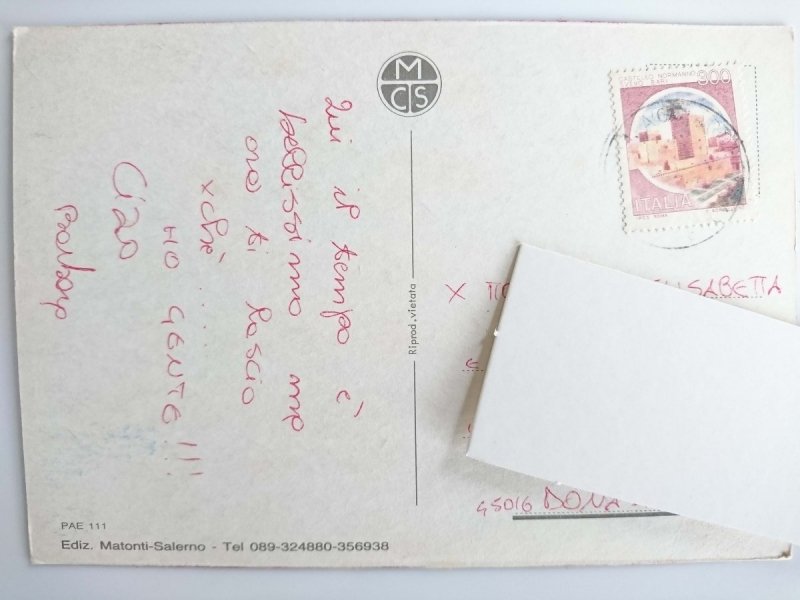 Qui il tempo è
bellissimo ma
ora ti lascio
xchè.....
HO GENTE!!!
Ciao
Barbara
MCS
Riprod. vietata
CASTELLO NORMANNO
SVEVO BARI
300
ITALIA
X
ELISABETTA
45016 DONA
PAE 111
Ediz. Matonti-Salerno - Tel 089-324880-356938